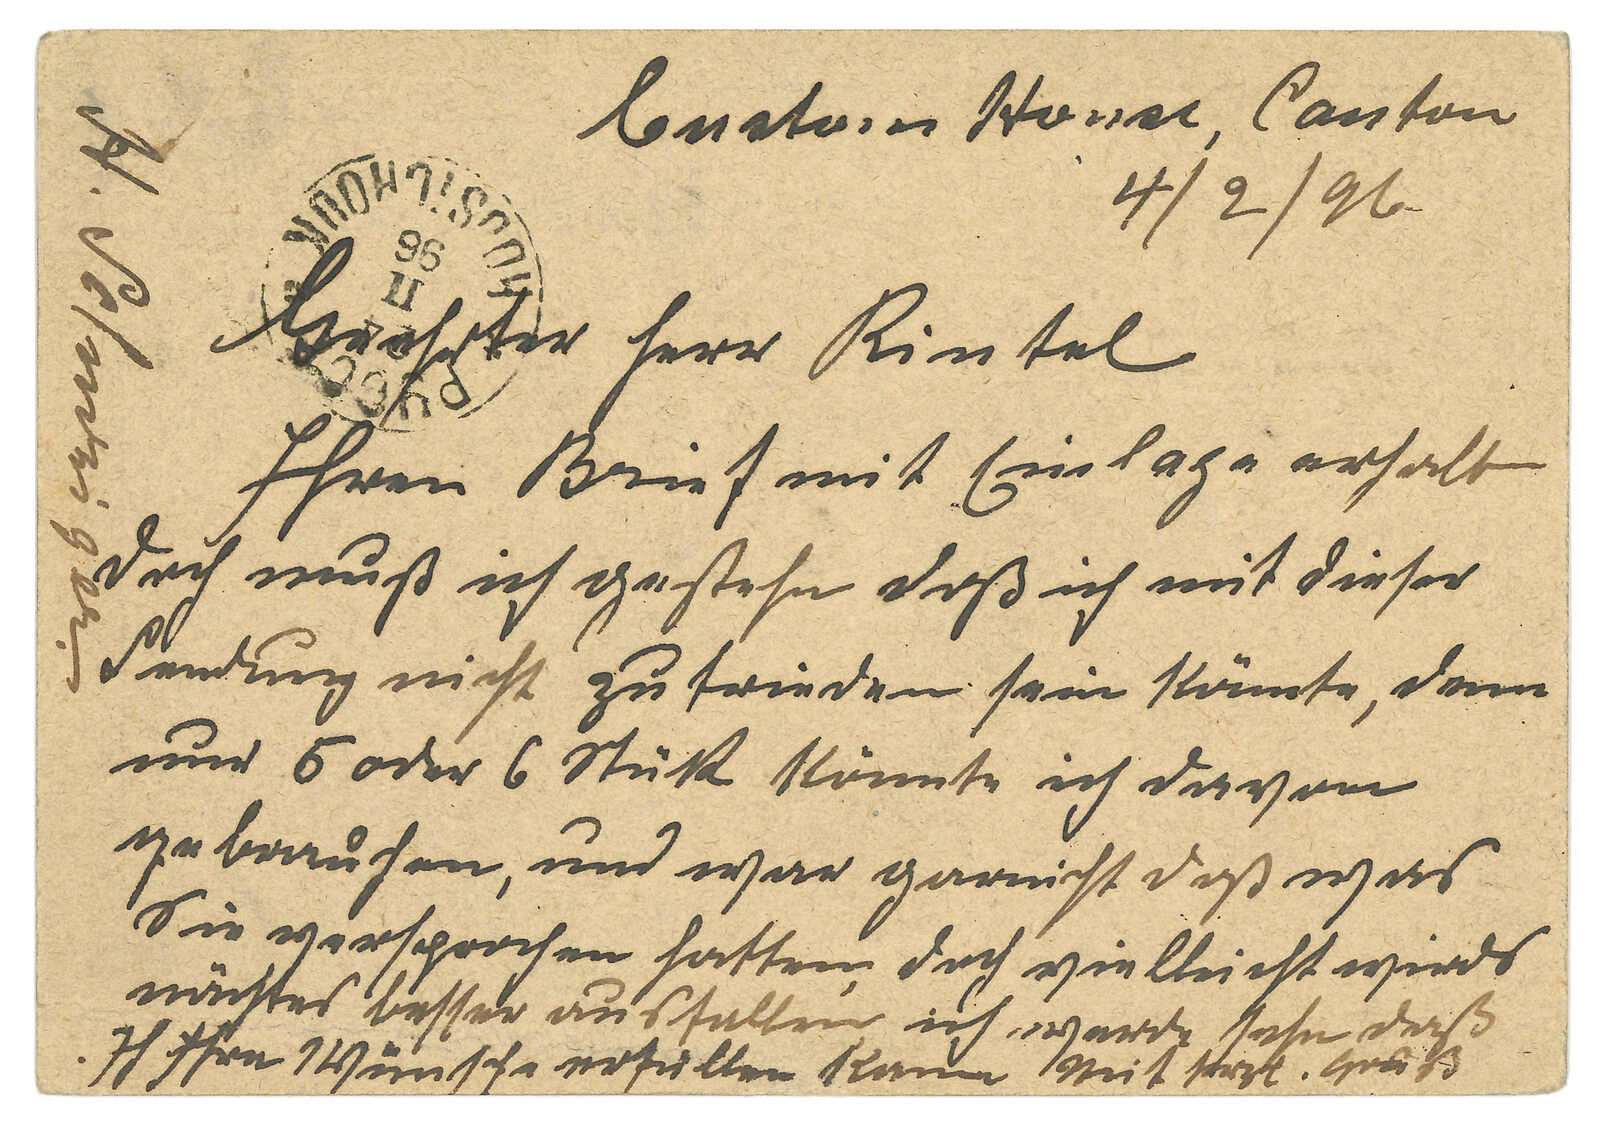 Custom House, Canton
4/2/96
Geehrter Herr Rintel
Ihren Brief mit Einlage erhalten
doch muß ich gestehn daß ich mit dieser
Sendung nicht zufrieden sein könnte, denn
nur 5 oder 6 Stük könnte ich davon
gebrauchen, und war garnicht daß was
Sie versprochen hatten, doch vielleicht wirds
nächtes besser ausfallen, ich werde sehn daß
Ich Ihre Wünsche erfüllen kann Mit Gruß
H.
96
II